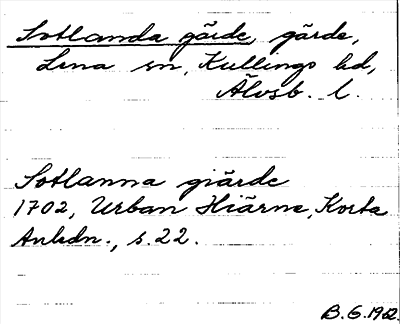 Sotlanda gärde, gärde,
Lena sn, Kullings hd,
Älvsb. l.
Sotlanna giärde
1702, Urban Hiärne, Korta
Anledn., s. 22.
B. G. 1962.